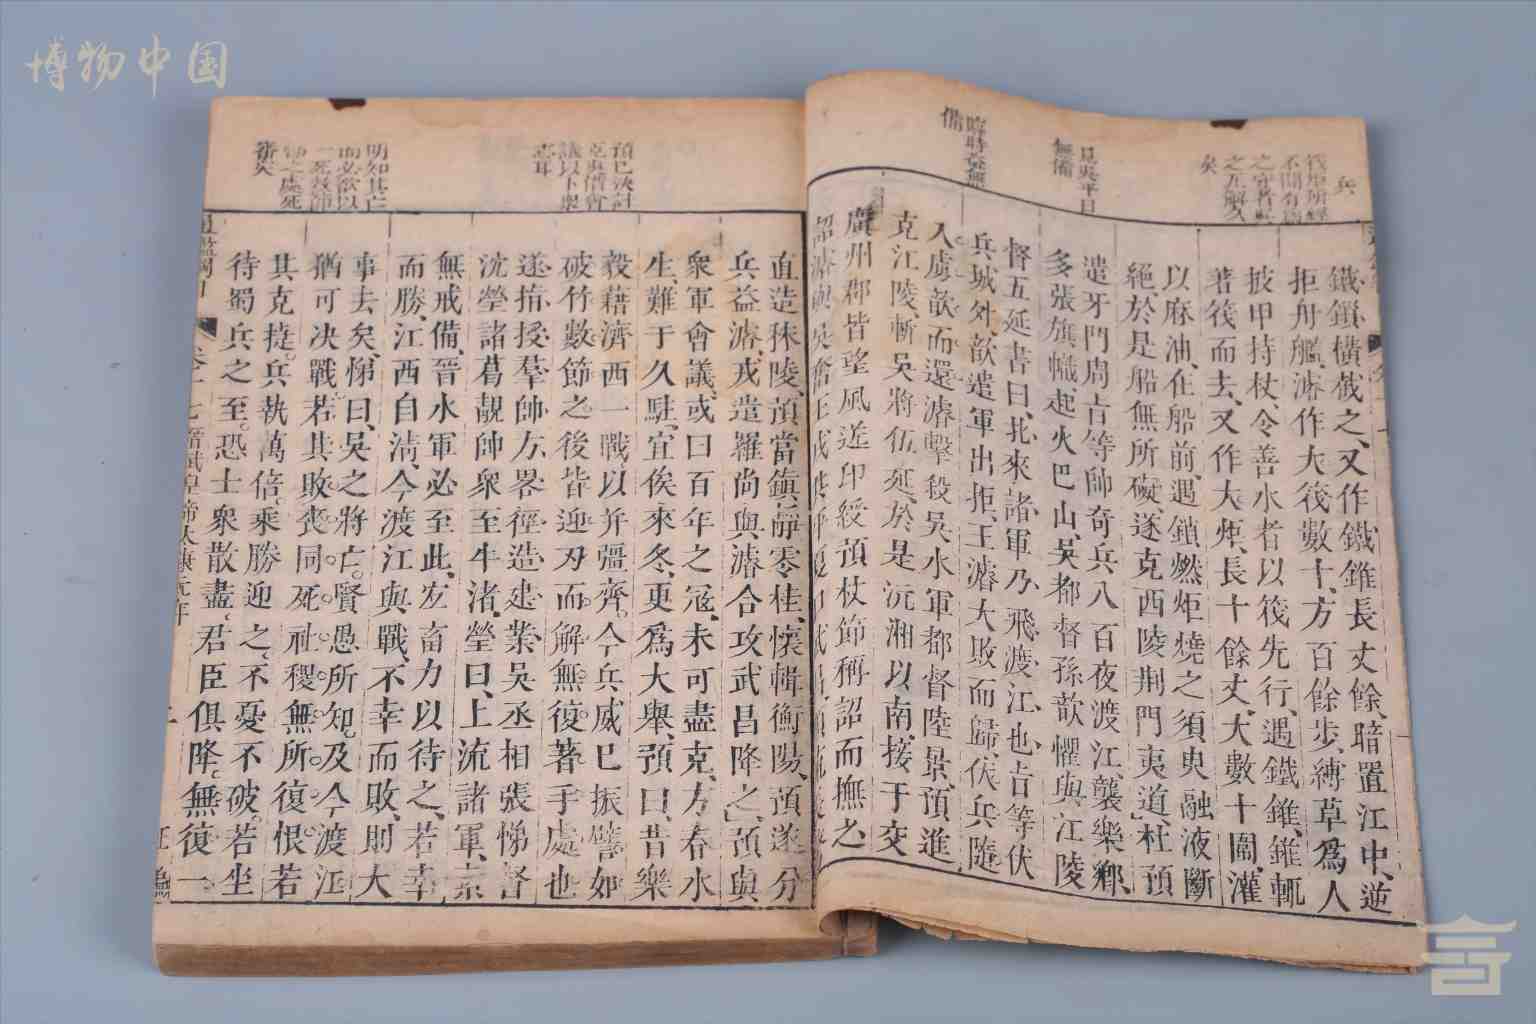 博物中国
兵
筏堅所經
不聞有爲
之守者
之瓦解久
矣
見吳平日
無備
臨時益無
備
鐵鎖橫截之、又作鐵錐長丈餘、暗置江中、逆
拒舟艦、濬作大筏數十、方百餘步、縛草爲人
披甲持杖、令善水者以筏先行、遇鐵錐、錐輒
著筏而去、又作大炬、長十餘丈、大數十圍、灌
以麻油、在船前、遇鎖燃炬燒之、須臾融液斷
絕、於是船無所礙、遂克西陵荆門夷道、杜預
遣牙門周旨等帥奇兵八百夜渡江、襲樂鄉、
多張旗幟、起火巴山、吳都督孫歆懼、與江陵
督五延書曰、北來諸軍、乃飛渡江也、旨等伏
兵城外、歆遣軍出拒、王濬大敗而歸、伏兵隨
入、虜歆而還、濬擊殺吳水軍都督陸景、預進
克江陵、斬吳將伍延、於是沅湘以南、接于交
廣、州郡皆望風送印綬、預杖節稱詔而撫之、
預已決計
克吳借會
議以下衆
志耳
明知其亡
而必欲以
一死殺師
審矣
直造秣陵、預當鎮靜零桂、懷輯衡陽、預遂分
兵益濬、戎遣羅尚與濬合攻武昌、降之、預與
衆軍會議、或曰、百年之冦、未可盡克、方春水
生、難于久駐、宜俟來冬、更爲大舉、預曰、昔樂
毅藉濟西一戰以并彊齊、今兵威已振、譬如
破竹、數節之後、皆迎刃而解、無復著手處也、
遂指授羣帥方畧、徑造建業、吳丞相張悌督
沈瑩諸葛靚帥衆至牛渚、瑩曰、上流諸軍、素
無戒備、晉水軍必至此、宜畜力以待之、若幸
而勝、江西自清、今渡江與戰、不幸而敗、則大
事去矣、悌曰、吳之將亡、賢愚所知、及今渡江
猶可决戰、若其敗喪、同死社稷、無所復恨、若
其克㨗、兵執萬倍、乘勝迎之、不憂不破、若坐
待蜀兵之至、恐士衆散盡、君臣俱降、無復一